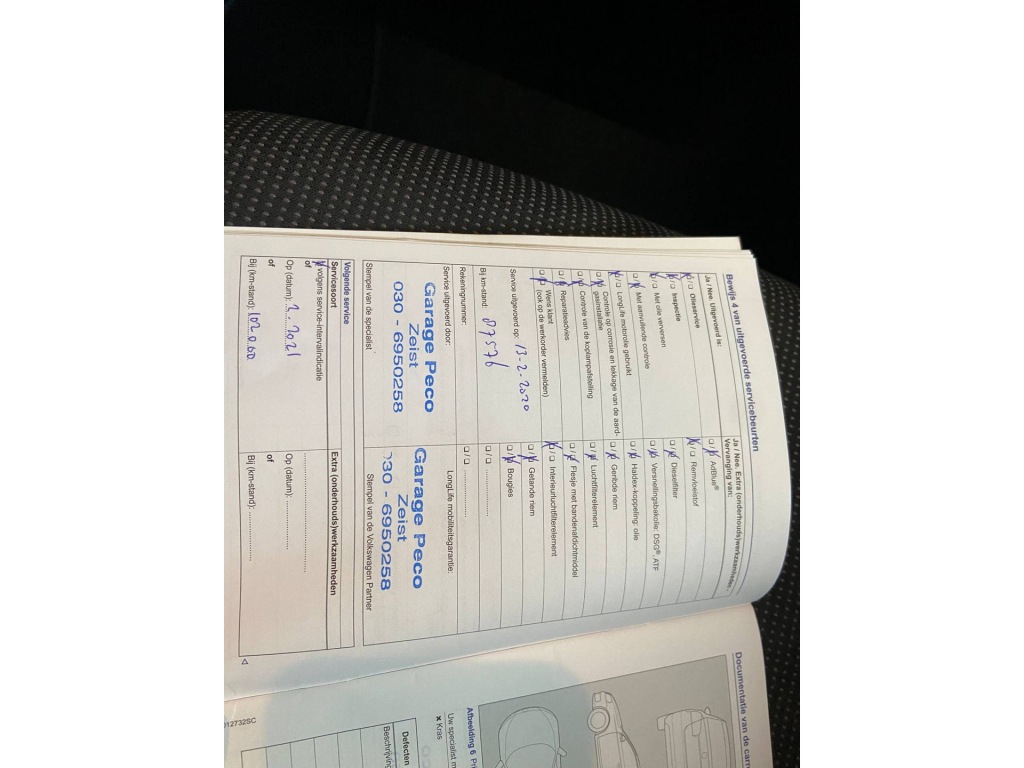 Bewijs 4 van uitgevoerde servicebeurten
Ja / Nee. Uitgevoerd is:
Olieservice
Inspectie
Met olie verversen
Met aanvullende controle
LongLife motorolie gebruikt
Controle op corrosie en lekkage van de aard-
gasinstallatie
Controle van de koplampafstelling
Reparatieadvies
Wens klant
(ook op de werkorder vermelden)
Service uitgevoerd op: 13-2-2020
Bij km-stand: 87576
Rekeningnummer:
Service uitgevoerd door:
Garage Peco
Zeist
030 - 6950258
Stempel van de specialist
Ja / Nee. Extra (onderhouds)werkzaamheden -
Vervanging van:
AdBlue®
Remvloeistof
Dieselfilter
Versnellingsbakolie: DSG®, ATF
Haldex-koppeling: olie
Geribde riem
Luchtfilterelement
Flesje met bandenafdichtmiddel
Interieurluchtfilterelement
Getande riem
Bougies
LongLife mobiliteitsgarantie:
Garage Peco
Zeist
030 - 6950258
Stempel van de Volkswagen Partner
Volgende service
Servicesoort
volgens service-intervalindicatie
of
Op (datum): 2-2021
of
Bij (km-stand): 102.060
Extra (onderhouds)werkzaamheden
Op (datum):
of
Bij (km-stand):
Documentatie van de carr
Afbeelding 6 Pri
Uw specialist m
× Kras
Defecten
Beschrijving
012732SC